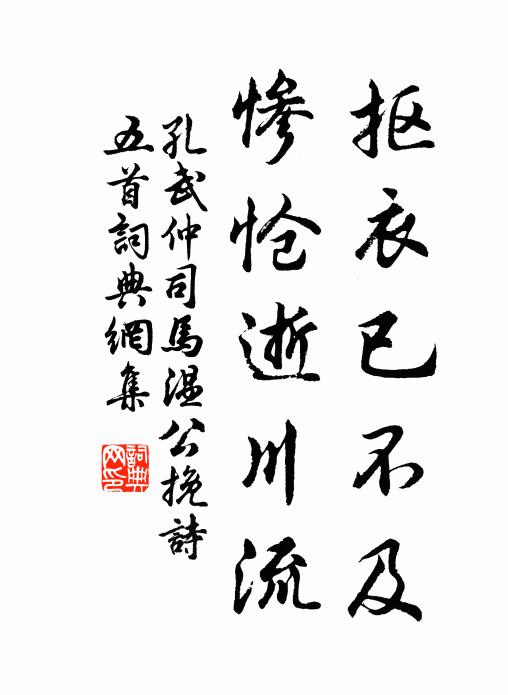 抠衣已不及
惨怆逝川流
孔武仲司馬温公挽詩
五首詞典網集
詞典网印